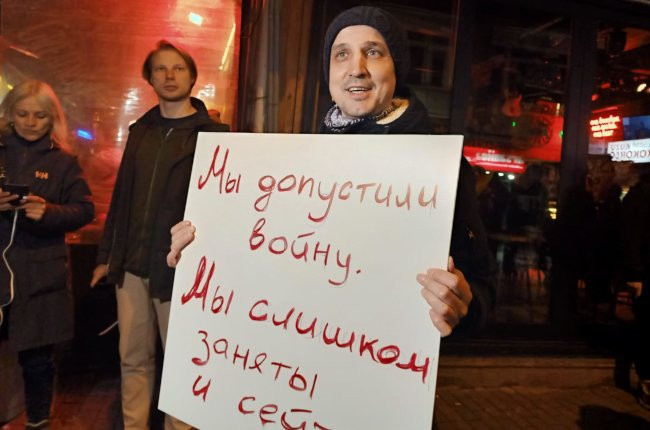 Мы допустили
войну.
Мы слишком
заняты
и сей